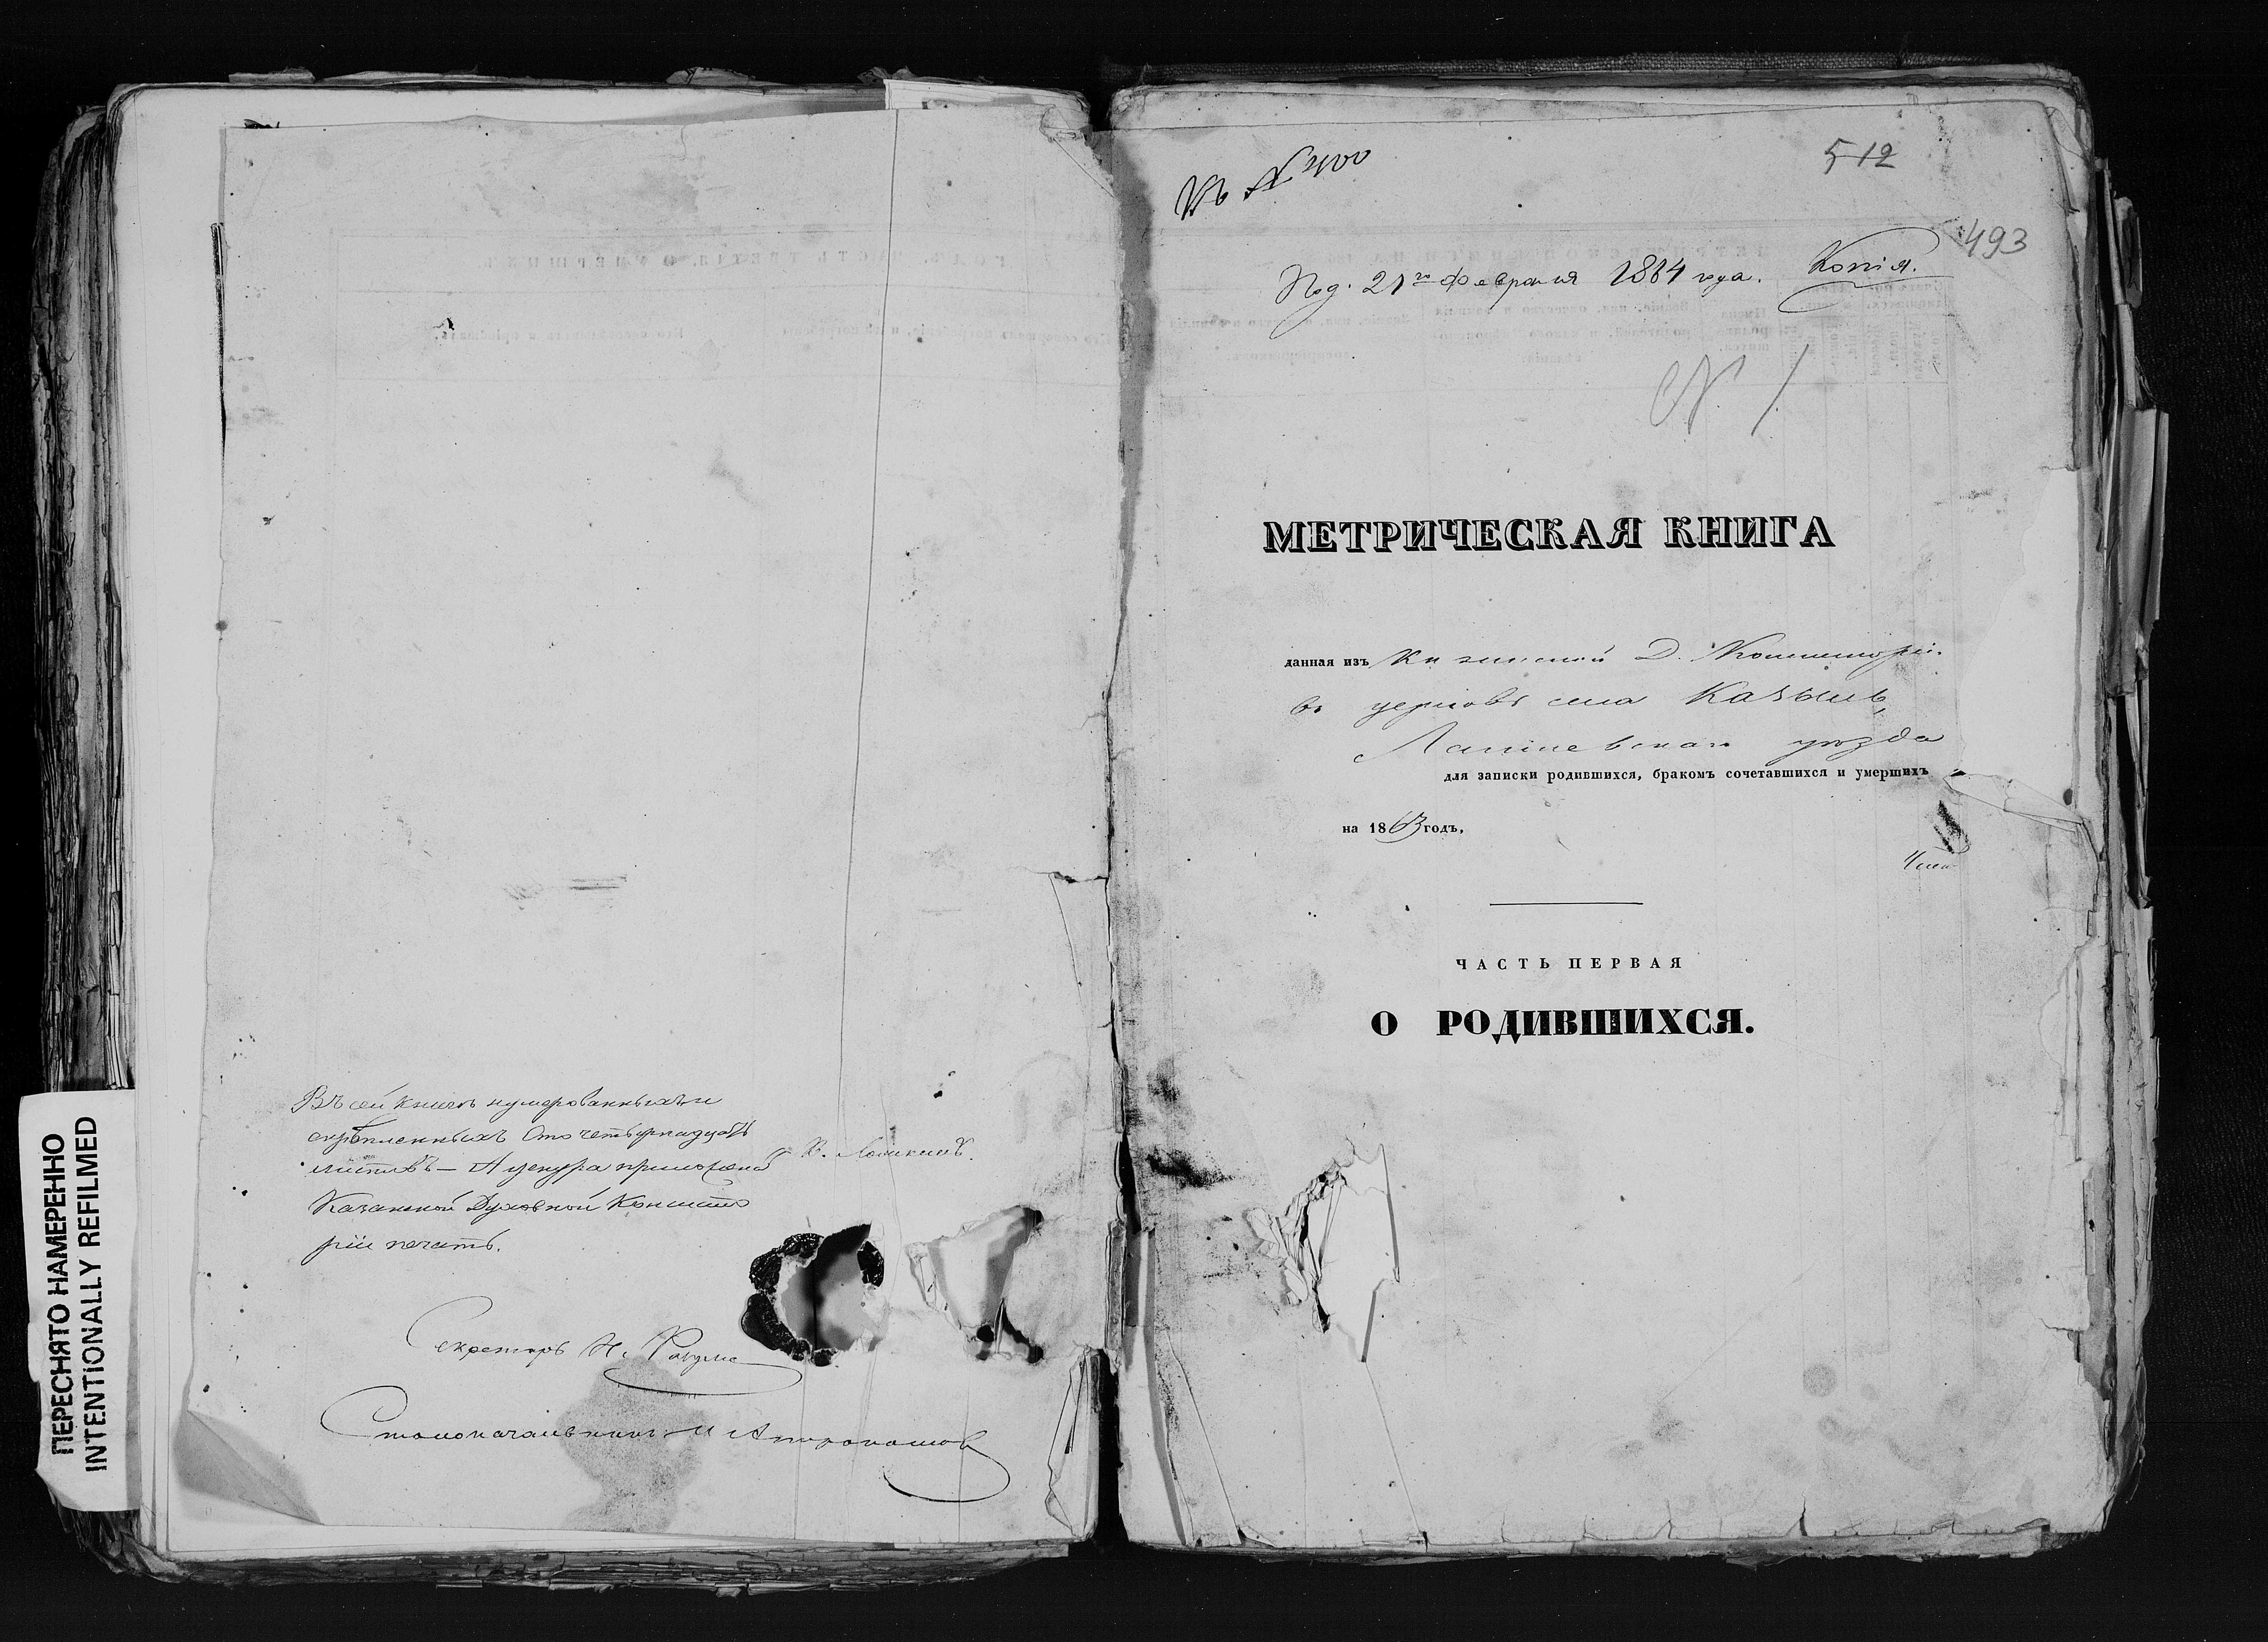 Въ сей книгѣ нумерованныхъ и
скрѣпленныхъ сто четырнадцать
листовъ — А у снура приложена
Казанской Духовной Консисто
ріи печать.
Секретарь Н.
Столоначальникъ
ПЕРЕСНЯТО НАМЕРЕННО
INTENTIONALLY REFILMED
Къ № 400
512
493
Под. 21го Февраля 1864 года. Копія.
№ 1
МЕТРИЧЕСКАЯ КНИГА
данная изъ Казанской Д. Консисторіи
въ церковь села Казыли,
Лаишевскаго уѣзда
для записки родившихся, бракомъ сочетавшихся и умершихъ
на 1863 годъ.
ЧАСТЬ ПЕРВАЯ
О РОДИВШИХСЯ.